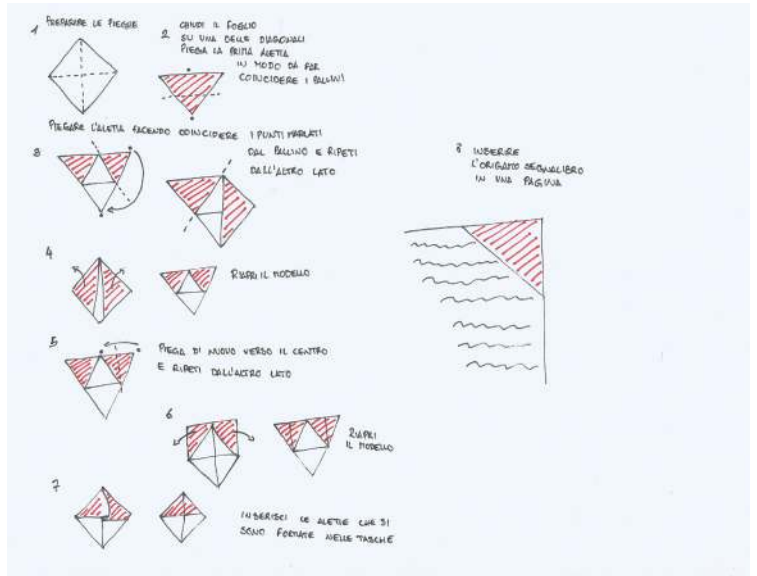 1 PREPARARE LE PIEGHE
2 CHIUDI IL FOGLIO
SU UNA DELLE DIAGONALI
PIEGA LA PRIMA ALETTA
IN MODO DA FAR
COINCIDERE I PALLINI
PIEGARE L'ALETTA FACENDO COINCIDERE I PUNTI MARCATI
3
DAL PALLINO E RIPETI
DALL'ALTRO LATO
4
RIAPRI IL MODELLO
5
PIEGA DI NUOVO VERSO IL CENTRO
E RIPETI DALL'ALTRO LATO
6
RIAPRI
IL MODELLO
7
INSERISCI LE ALETTE CHE SI
SONO FORMATE NELLE TASCHE
8 INSERIRE
L'ORIGAMO SEGNALIBRO
IN UNA PAGINA